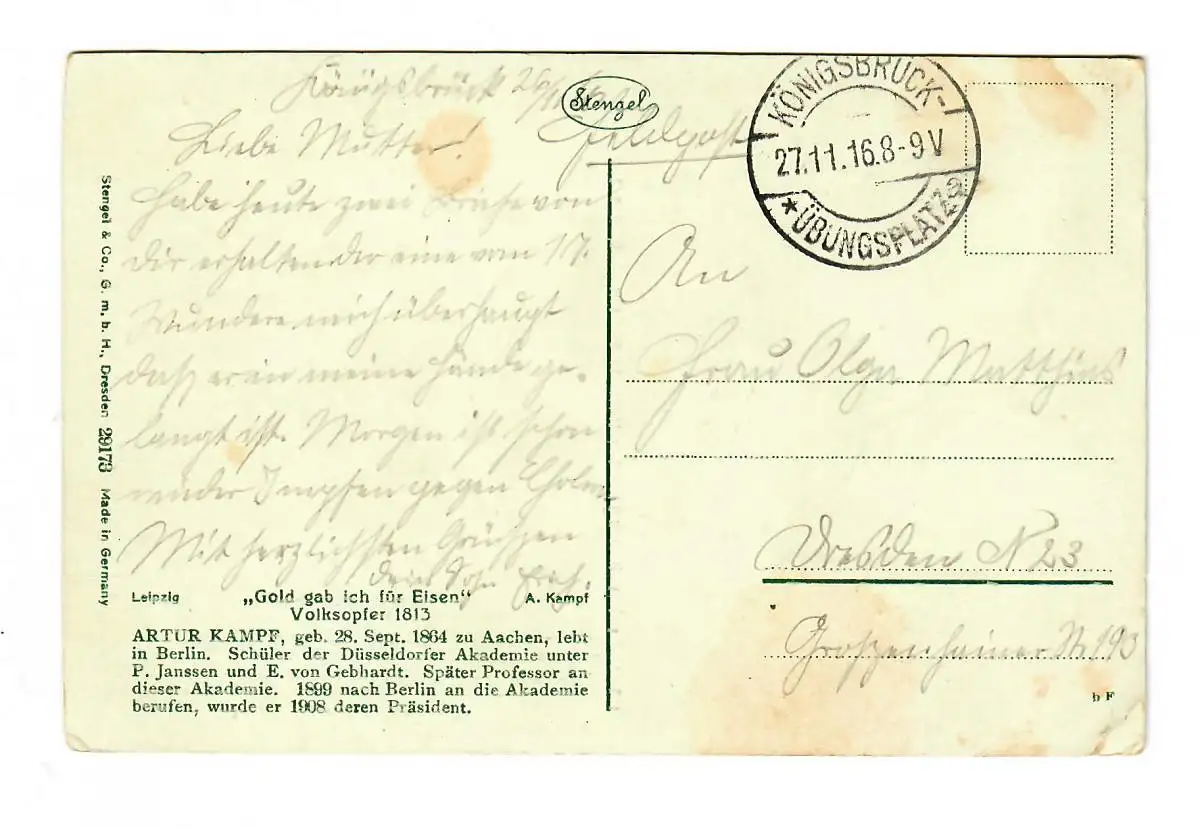 Königsbrück 26/11 16.
Stengel
Feldpost
KÖNIGSBRÜCK-
27.11.16.8-9V
* ÜBUNGSPLATZ a
Liebe Mutter!
Habe heute zwei Briefe von
Dir erhalten der eine vom 17.
Wundere mich überhaupt
daß er in meine Hände ge-
langt ist. Morgen ist schon
wieder Impfen gegen Cholera
Mit herzlichsten Grüßen
dein Sohn Erich.
An
Frau Olga Matthias
Dresden N 23
Großenhainer Str. 193
Stengel & Co., G. m. b. H., Dresden 29173 Made in Germany
Leipzig „Gold gab ich für Eisen“ A. Kampf
Volksopfer 1813
ARTUR KAMPF, geb. 28. Sept. 1864 zu Aachen, lebt
in Berlin. Schüler der Düsseldorfer Akademie unter
P. Janssen und E. von Gebhardt. Später Professor an
dieser Akademie. 1899 nach Berlin an die Akademie
berufen, wurde er 1908 deren Präsident.
b F